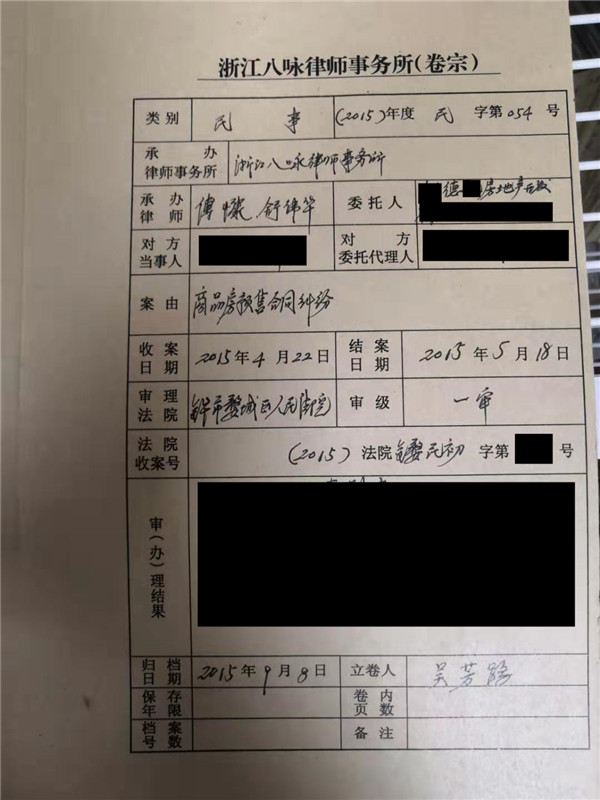 浙江八咏律师事务所(卷宗)
类别 民 事 (2015)年度 民 字第 054 号
承办律师事务所 浙江八咏律师事务所
承办律师 傅 舒伟华 委托人 德 房地产开发
对方当事人 对方委托代理人
案由 商品房预售合同纠纷
收案日期 2015年4月22日 结案日期 2015年5月18日
审理法院 金华市婺城区人民法院 审级 一审
法院收案号 (2015)法院金婺民初 字第 号
审(办)理结果
归档日期 2015年9月8日 立卷人 吴芳
保存年限 卷内页数
档案号数 备注